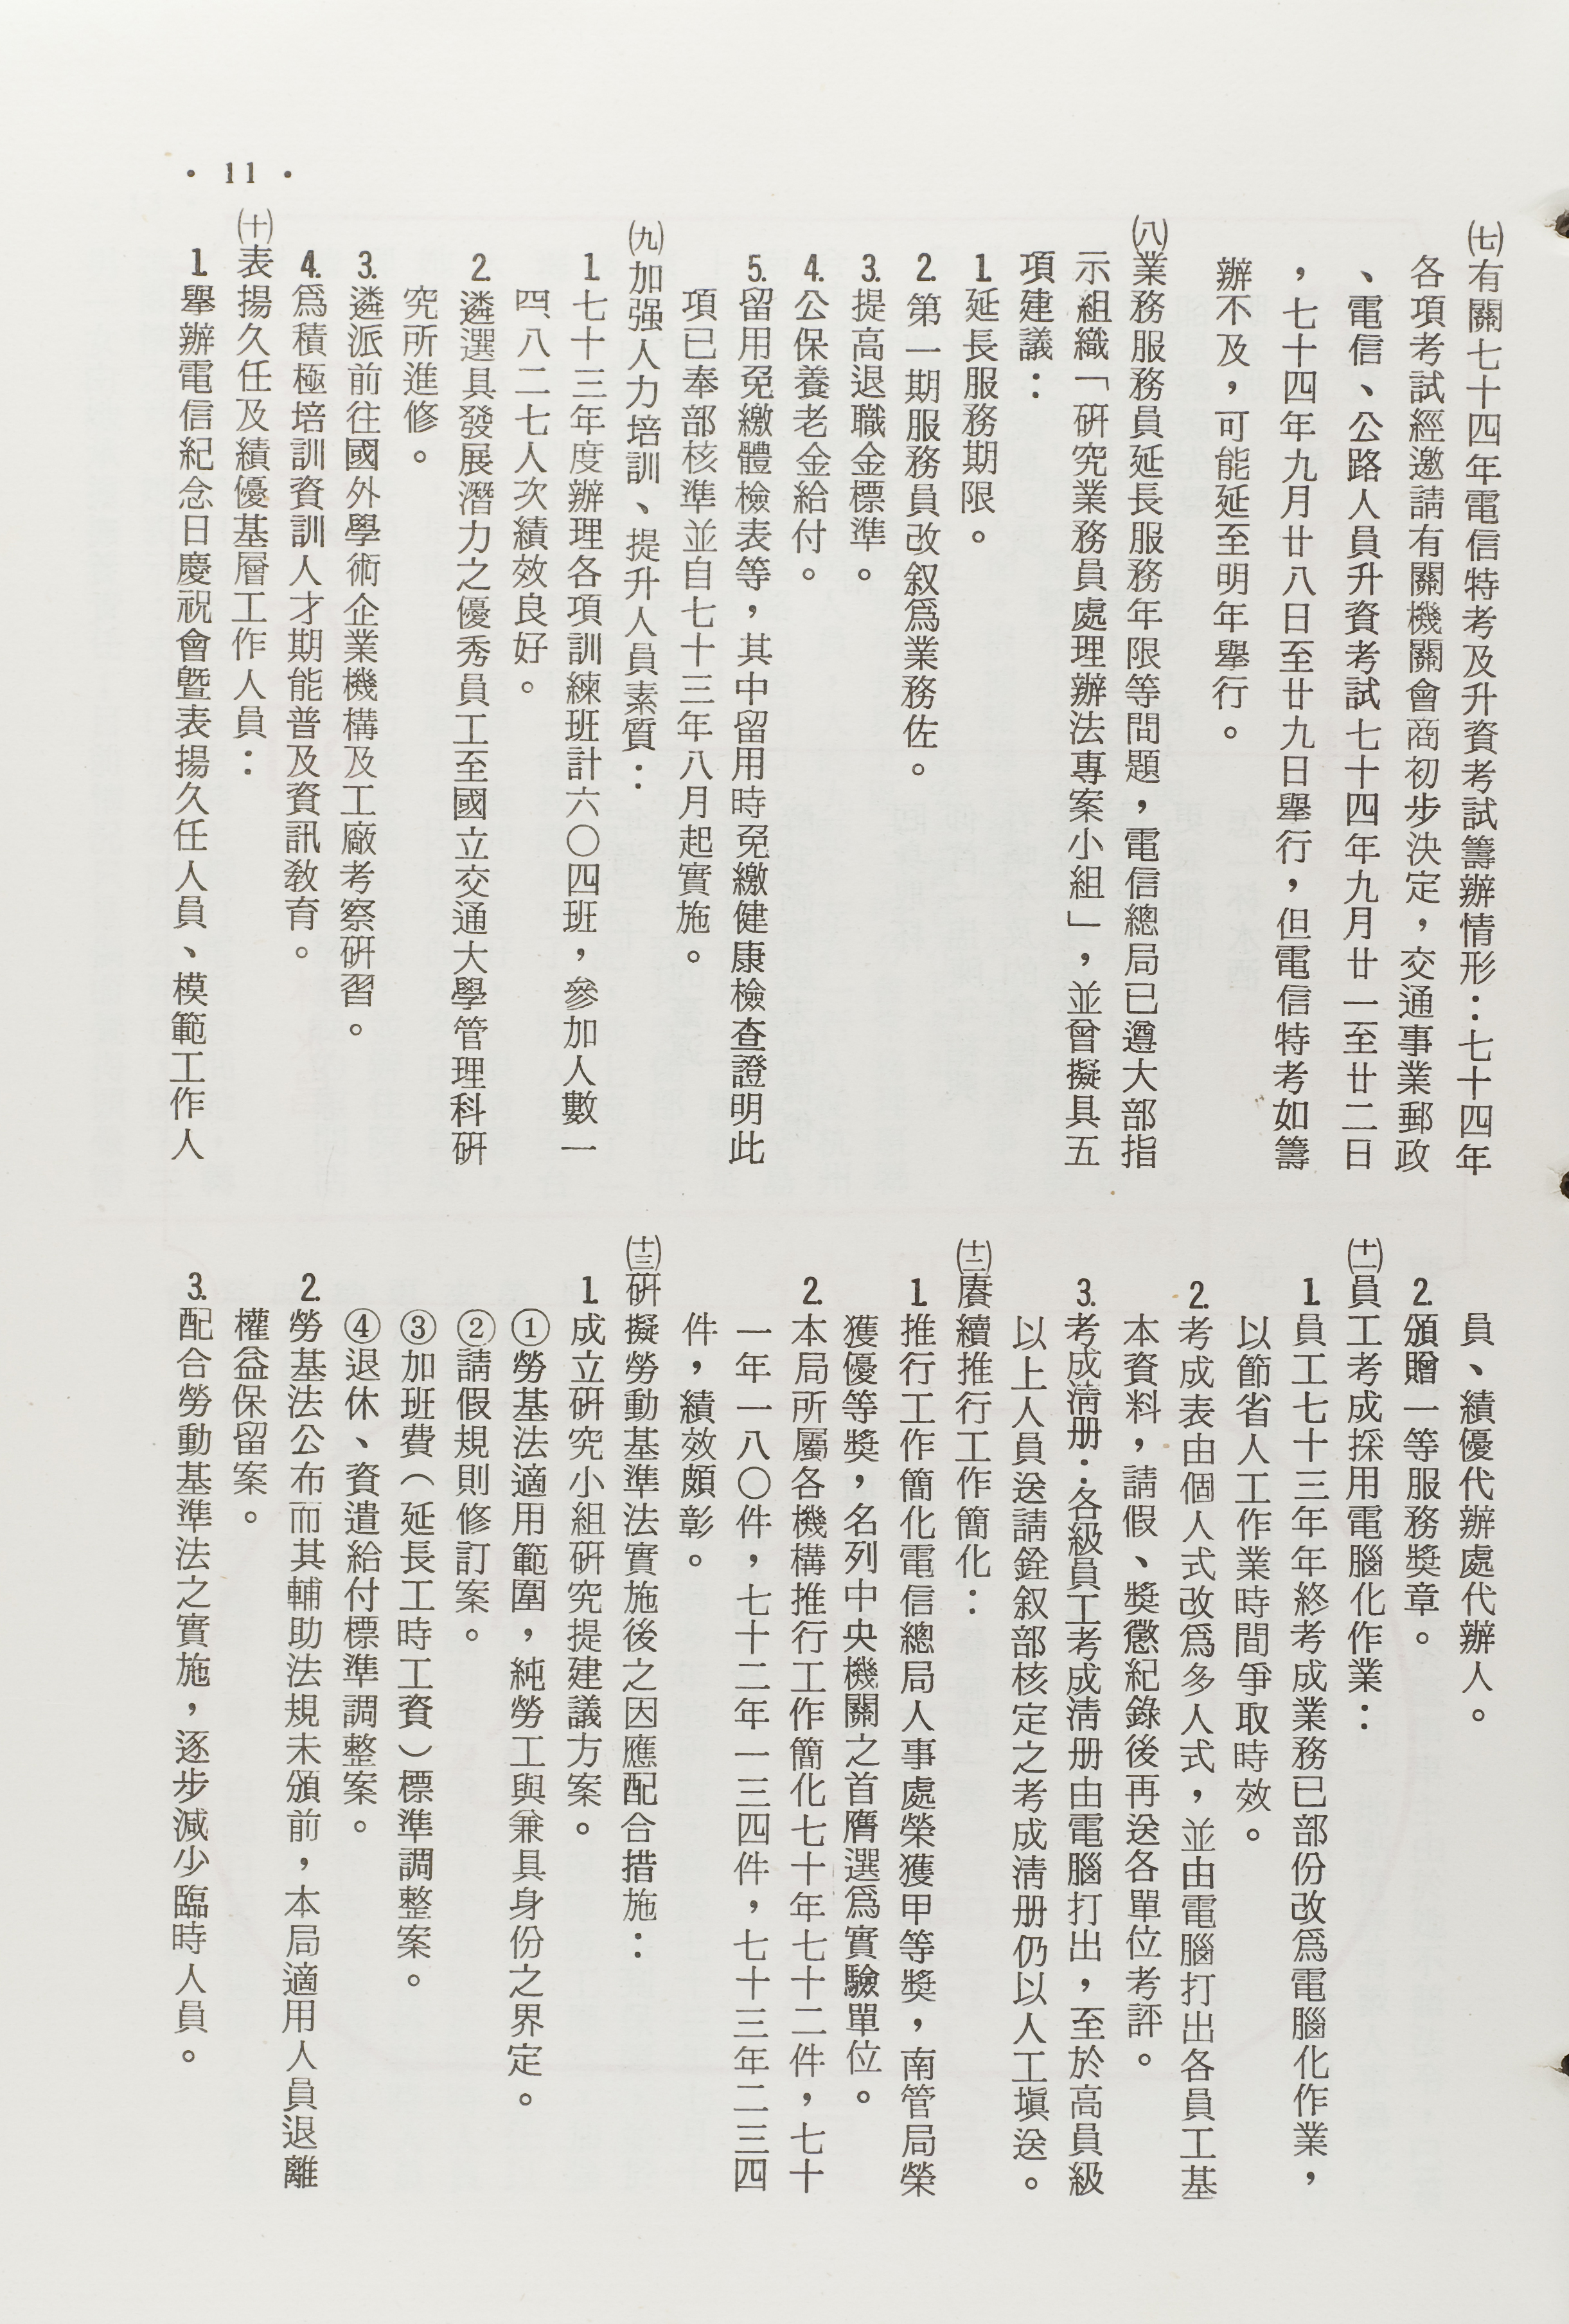 • 11 •
㈦有關七十四年電信特考及升資考試籌辦情形：七十四年
各項考試經邀請有關機關會商初步決定，交通事業郵政
、電信、公路人員升資考試七十四年九月廿一至廿二日
，七十四年九月廿八日至廿九日舉行，但電信特考如籌
辦不及，可能延至明年舉行。
㈧業務服務員延長服務年限等問題，電信總局已遵大部指
示組織「研究業務員處理辦法專案小組」，並曾擬具五
項建議：
1.延長服務期限。
2.第一期服務員改叙爲業務佐。
3.提高退職金標準。
4.公保養老金給付。
5.留用免繳體檢表等，其中留用時免繳健康檢查證明此
項已奉部核準並自七十三年八月起實施。
㈨加强人力培訓、提升人員素質：
1.七十三年度辦理各項訓練班計六〇四班，參加人數一
四、八二七人次績效良好。
2.遴選具發展潛力之優秀員工至國立交通大學管理科研
究所進修。
3.遴派前往國外學術企業機構及工廠考察研習。
4.爲積極培訓資訓人才期能普及資訊教育。
㈩表揚久任及績優基層工作人員：
1.舉辦電信紀念日慶祝會暨表揚久任人員、模範工作人
員、績優代辦處代辦人。
2.頒贈一等服務獎章。
(十一)員工考成採用電腦化作業：
1.員工七十三年年終考成業務已部份改爲電腦化作業，
以節省人工作業時間爭取時效。
2.考成表由個人式改爲多人式，並由電腦打出各員工基
本資料，請假、獎懲紀錄後再送各單位考評。
3.考成淸册：各級員工考成淸册由電腦打出，至於高員級
以上人員送請銓叙部核定之考成淸册仍以人工塡送。
(十二)賡續推行工作簡化：
1.推行工作簡化電信總局人事處榮獲甲等獎，南管局榮
獲優等獎，名列中央機關之首膺選爲實驗單位。
2.本局所屬各機構推行工作簡化七十年七十二件，七十
一年一八〇件，七十二年一三四件，七十三年二三四
件，績效頗彰。
(十三)研擬勞動基準法實施後之因應配合措施：
1.成立研究小組研究提建議方案。
①勞基法適用範圍，純勞工與兼具身份之界定。
②請假規則修訂案。
③加班費（延長工時工資）標準調整案。
④退休、資遣給付標準調整案。
2.勞基法公布而其輔助法規未頒前，本局適用人員退離
權益保留案。
3.配合勞動基準法之實施，逐步減少臨時人員。